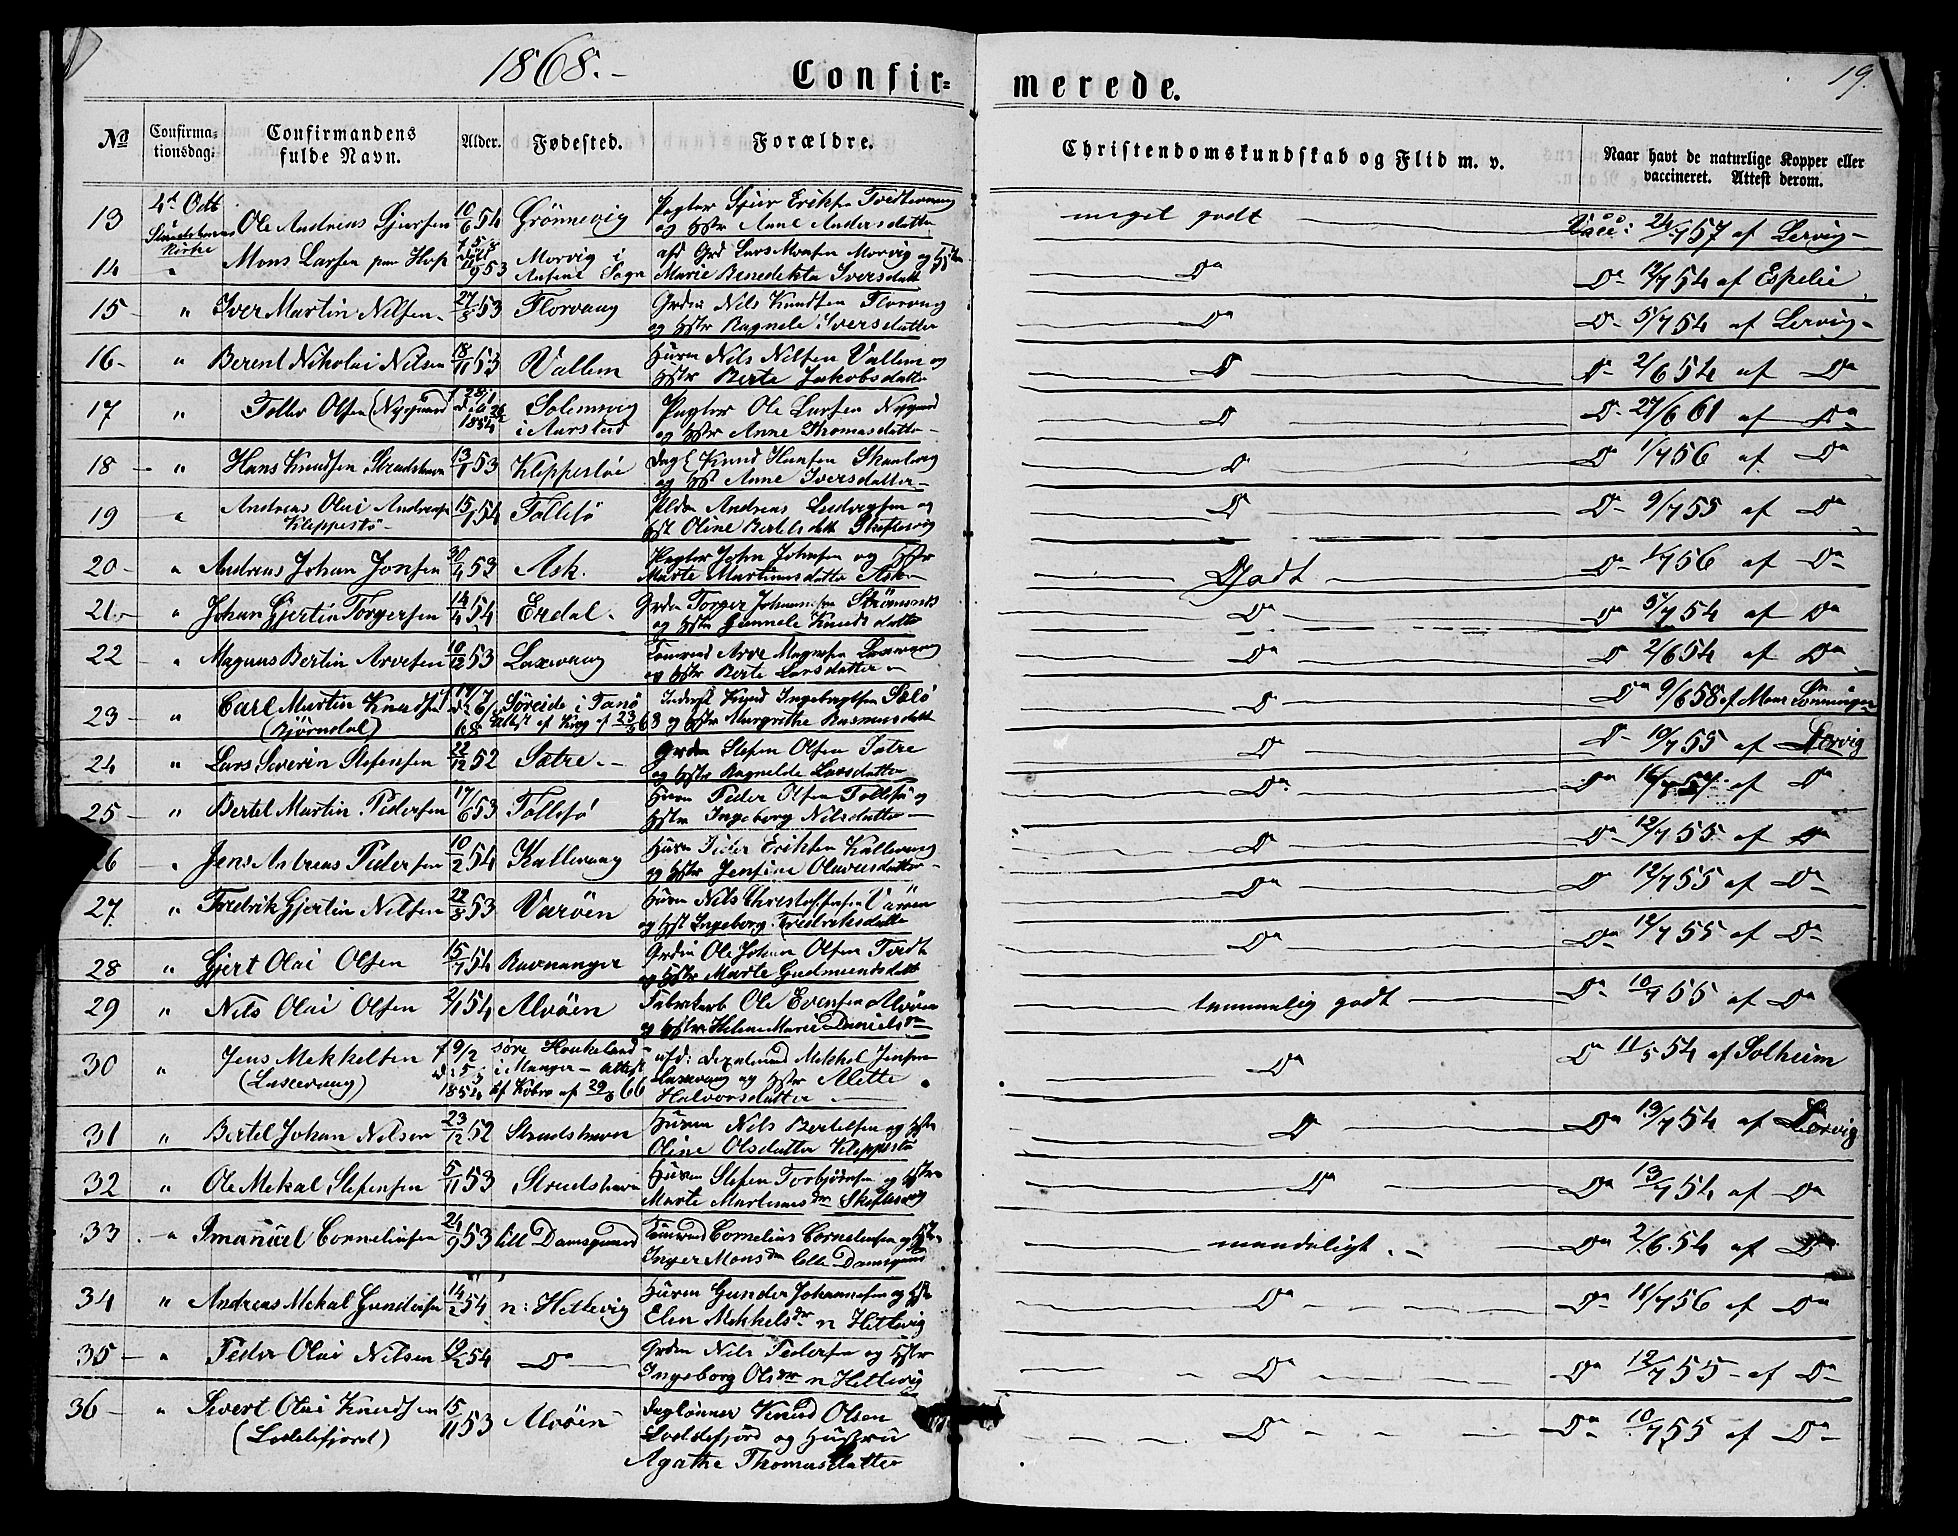 1868.-
Confir= merede.
19.
No
Confirma=
tionsdag.
Confirmandens
fulde Navn.
Alder.
Fødested.
Forældre.
Christendomskundskab og Flid m. v.
Naar havt de naturlige Kopper eller
vaccineret. Attest derom.
13 4de Octt Ole Andreas 10/6 54 Grönnevig og Hstr Anne Andersdatter meget godt Vacc: 24/7 57 af Lervig-
Kirke
14 " Mons Larsen 53 Morvig i afd Grd Lars Monsen Morvig og Hstr
Marie Benedikta Iversdatt Do 12/7 54 af Espelie
15- " Iver Martin Nilsen. 27/8 53 Florvaag Grdm Nils Knudsen Florvaag
og Hstr Ragnele Iversdatter Do Do 5/7 54 af Lervig-
16- " Berent Nikolai Nilsen 18/11 53 Vallem Huusm Nils Nilsen Vallem og
Hstr Berte Jakobsdatter Do Do 2/6 54 af Do
17 " Tollev Olsen (Nygaard) f 28/1 1854 Solemsvig
i Aarstad Ole Larsen Nygaard
og Hstr Anne Thomasdatter- Do Do 27/6 61 af Do
18- " Hans Knudsen Strudshavn 13/1 53 Kleppestöe Knud Hansen
og Hst Anne Iversdatter- Do Do 1/7 56 af Do
19 " Andreas Olai Andreas
Kleppestö 15/1 54 Follesö Andreas Ludvigsen og
Hst Oline Bertelsdatt Skiftesvig Do Do 9/7 55 af Do
20- " Andreas Johan Jonsen 30/4 53 Ask. John Johnsen og Hstr
Marte Martinusdatter Ask- Godt Do 1/7 56 af Do
21- " Johan Gjertin Torgersen 14/4 54 Erdal. Grdm Torger Johannesen Strömsnes
og Hstr Gunnele Knudsdatter Do Do 5/7 54 af Do
22- " Magnus Bertin Arvesen 10/12 53 Laxevaag Arve Magnesen Laxevaag
og Hstr Berte Larsdatter- Do Do 2/6 54 af Do
23- " Carl Martin Knudsen
(Bjørndal) Søreide i Fanø Knud Ingebrigtsen
og Hstr Margrethe Rasmusdatt Do Do 9/6 58 af Mons Lönningen
24 " Lars Severin Stefensen 22/12 52 Sætre.- Grdm Stefen Olsen Sætre
og Hstr Ragnelde Larsdatter Do Do 10/7 55 af Lervig
25- " Bertel Martin Pedersen 17/6 53 Follesö Huusm Peder Olsen Follesö og
Hstr Ingeborg Nilsdatter- Do Do 16/7 57 af Do
26 " Jens Andreas Pedersen 10/2 54 Kallevaag Huusm Peder Eriksen Kallevaag
og Hstr Jensine Olavusdatter- Do Do 12/7 55 af Do
27. " Fredrik Gjertin Nilsen 22/8 53 Varöen Huusm Nils Christoffersen Varöen
og Hst Ingeborg Fredriksdatter Do Do 12/7 55 af Do
28 " Gjert Olai Olsen 15/7 54 Ravnanger Grdm Ole Johan Olsen Tvedt
og Hstr Marte Gudmundsdatt Do Do 12/7 55 af Do
29 " Nils Olai Olsen 2/1 54 Alvöen Fabrikarb Ole Evensen Alvöen
og Hstr Helene Marie Danielsdr temmelig godt Do 10/7 55 af Do
30 " Jens Mekkelsen
(Laxevaag) f 9/2 1854 söre Houkeland
i Manger- Attest af 29/ 66 Mekkel Jensen
Laxevaag og Hstr Alette
Halvorsdatter- Do Do 11/5 54 af Solheim
31 " Bertel Johan Nilsen 23/12 52 Strudshavn Huusm Nils Bertelsen og Hstr
Oline Olsdatter Kleppestö Do Do 13/7 54 af Lervig
32 " Ole Mekal Stefensen 5/11 53 Strudshavn Huusm Stefen Torbjörnsen og Hstr
Marte Martinusdr Skiftesvig Do Do 13/7 54 af Do
33. " Imanuel Cornelinsen 24/9 53 lille Damsgaard Cornelius Cornelinsen og Hstr
Inger Monsdr lille Damsgaard maadeligt.- Do 2/6 54 af Do
34 " Andreas Mekal Gundersen 14/2 54 n: Hetlevig Huusm Gunder Johannesen og Hstr
Elen Mekkelsdr n Hetlevig Do Do 11/7 56 af Do
35- " Peder Olai Nilsen 19/2 54 Do Grdm Nils Pedersen og Hstr
Ingeborg Olsdr n Hetlevig Do Do 12/7 55- af Do
36- " Sivert Olai Knudsen
(Loddefjord) 15/11 53 Alvöen Daglönner Knud Olsen
Loddefjord og Hustru
Agathe Thomasdatter Do Do 10/7 55 af Do